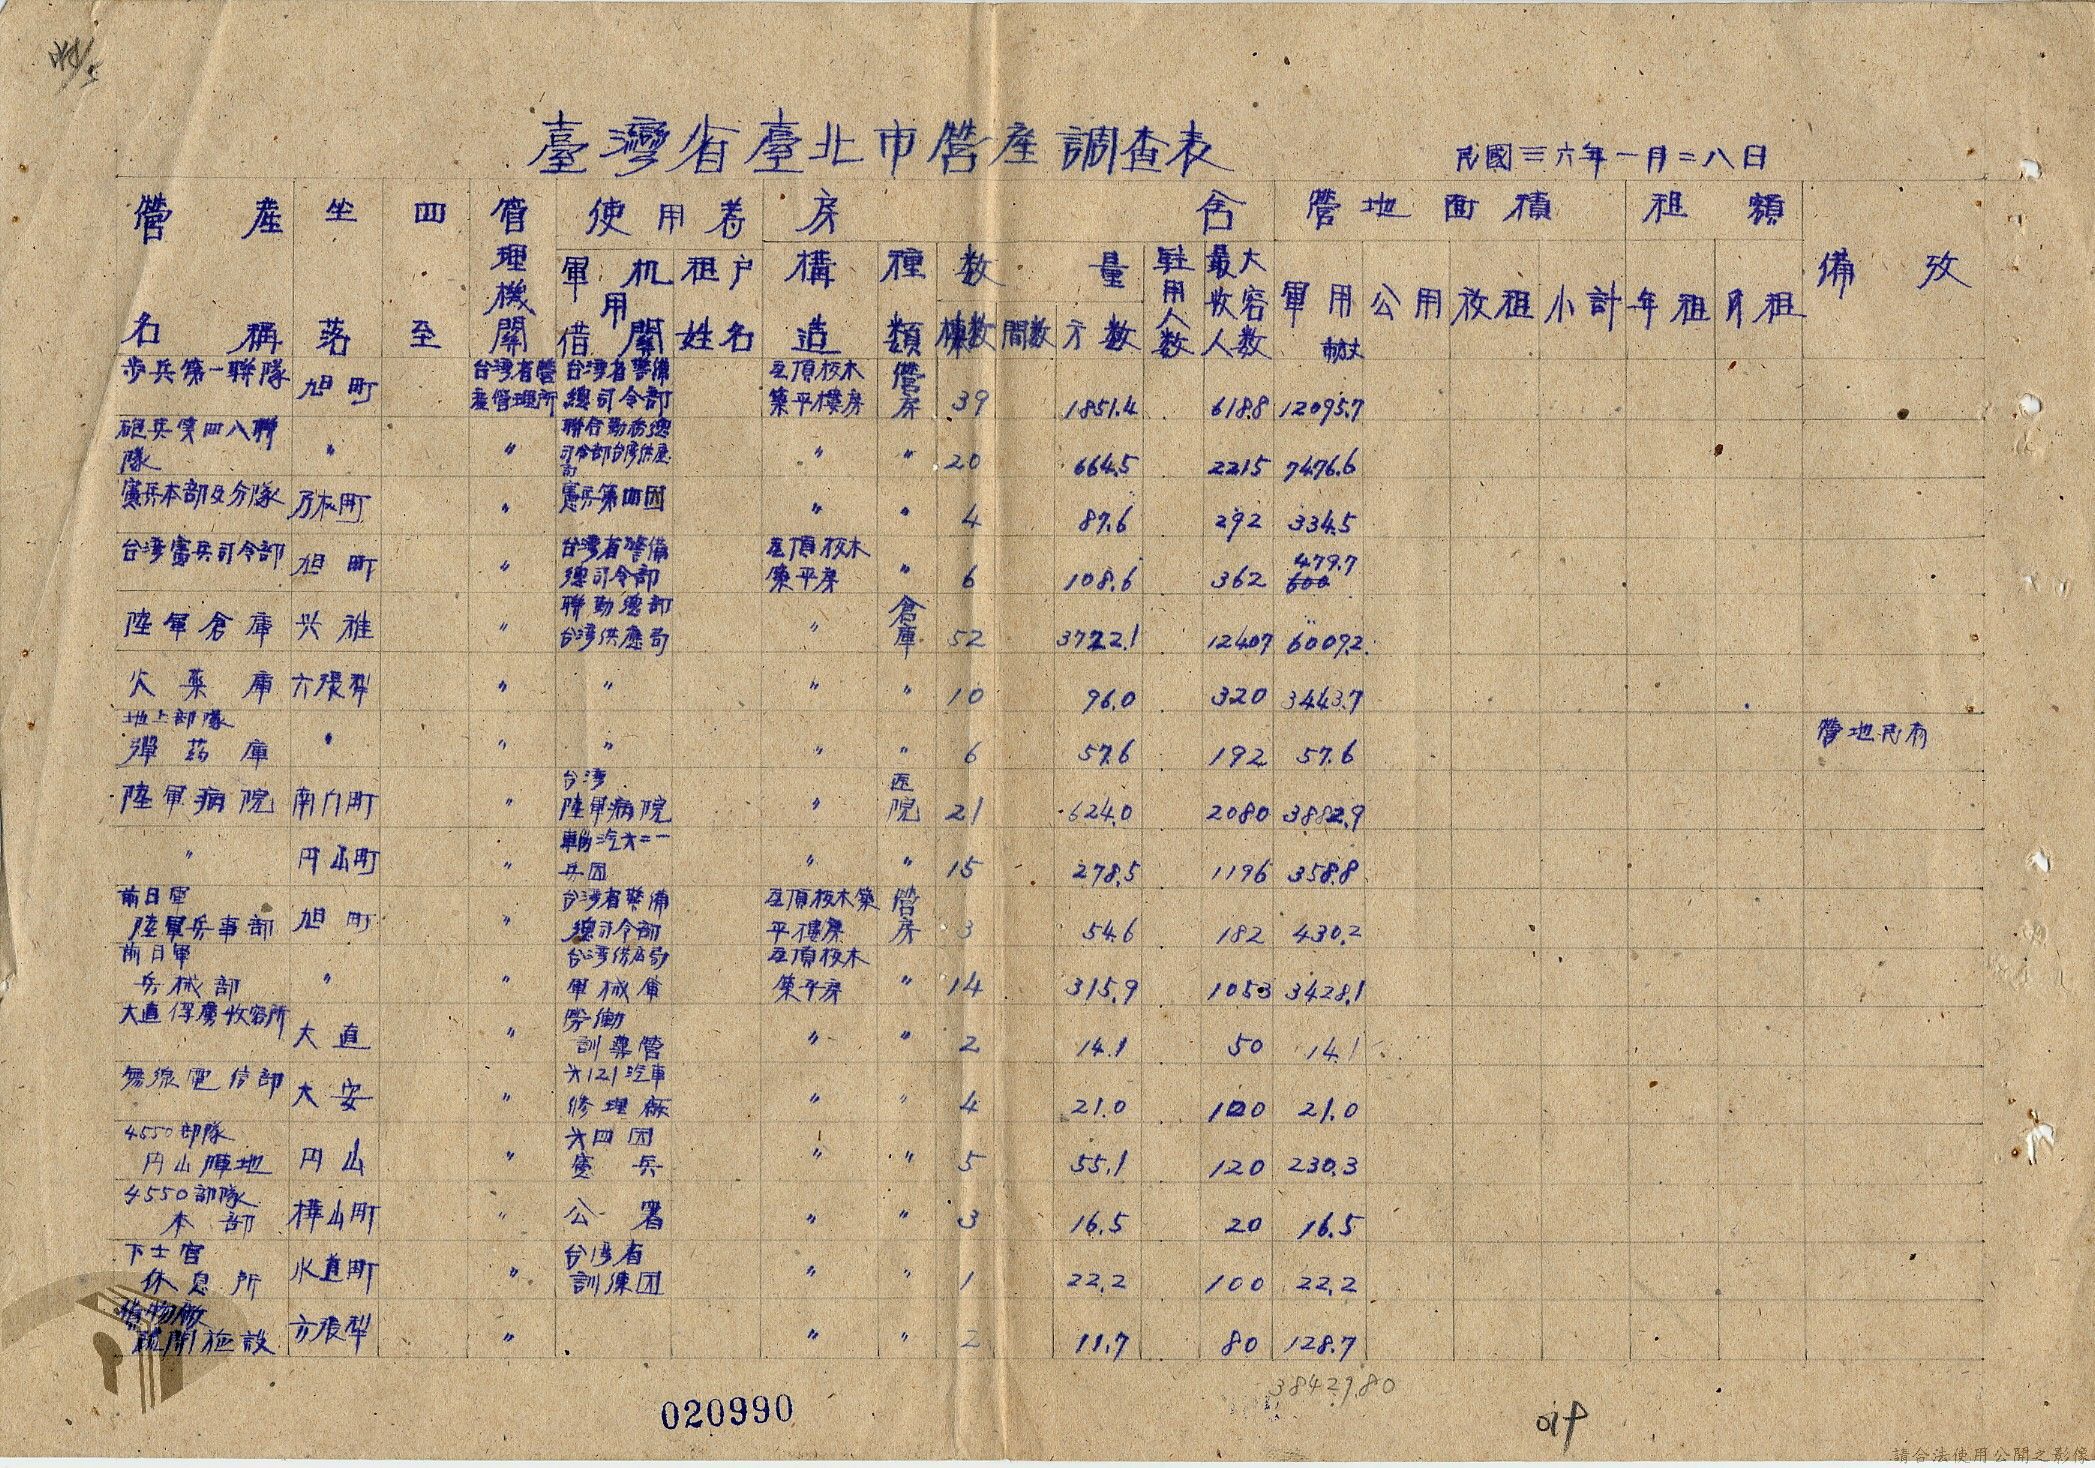 臺灣省臺北市營產調查表
民國三六年一月二八日
營產名稱 坐落 四至 管理機關 使用者 房舍 營地面積 租額 備攷
軍用機關借用 租戶姓名 構造 種類 数量 駐用人数 最大收容人数 軍用 公用 放租 小計 年租 月租
棟数 間数 方数 市方丈
步兵第一聯隊 旭町 台湾省營產管理所 台湾省警備總司令部 瓦頂板木築平樓房 營房 39 1851.4 6188 12095.7
砲兵第四八聯隊 〃 〃 聯合勤務總司令部台湾供應局 〃 〃 20 664.5 2215 7476.6
憲兵本部及分隊 乃木町 〃 憲兵第四团 〃 〃 4 87.6 292 334.5
台湾憲兵司令部 旭町 〃 台湾省警備總司令部 瓦頂板木築平房 〃 6 108.6 362 479.7 600
陸軍倉庫 兴雅 〃 聯勤總部台湾供應局 〃 倉庫 52 3722.1 12407 6009.2
火薬庫 六張犁 〃 〃 〃 〃 10 96.0 320 3443.7
地上部隊彈药庫 〃 〃 〃 〃 〃 6 57.6 192 57.6 營地民有
陸軍病院 南门町 〃 台湾陸軍病院 〃 医院 21 624.0 2080 3882.9
〃 円山町 〃 輜汽六二一兵团 〃 〃 15 278.5 1196 358.8
前日軍陸軍兵事部 旭町 〃 台湾省警備總司令部 瓦頂板木築平樓房 營房 3 54.6 182 430.2
前日軍兵械部 〃 〃 台湾供应局軍械庫 瓦頂板木築平房 〃 14 315.9 1053 3428.1
大直俘虜收容所 大直 〃 勞働訓導營 〃 〃 2 14.1 50 14.1
無線電信部 大安 〃 六121汽車修理廠 〃 〃 4 21.0 120 21.0
4550部隊円山陣地 円山 〃 六四团憲兵 〃 〃 5 55.1 120 230.3
4550部隊本部 樺山町 〃 公署 〃 〃 3 16.5 20 16.5
下士官休息所 水道町 〃 台湾省訓練团 〃 〃 1 22.2 100 22.2
貨物廠疏開施設 六張犁 〃 〃 〃 2 11.7 80 128.7
38429.80
020990
019
請合法使用公開之影像